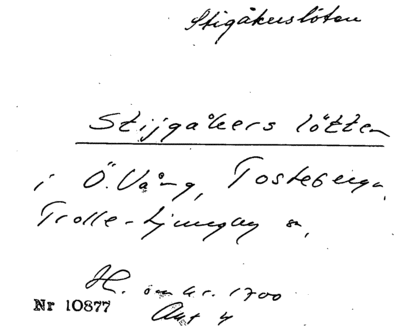 Stigåkerslöten
Stijgåkers lötten
i Ö. Vång, Tosteberga,
Trolle-Ljungby sn,
H. omkr. 1700
Akt 4
Nr 10877